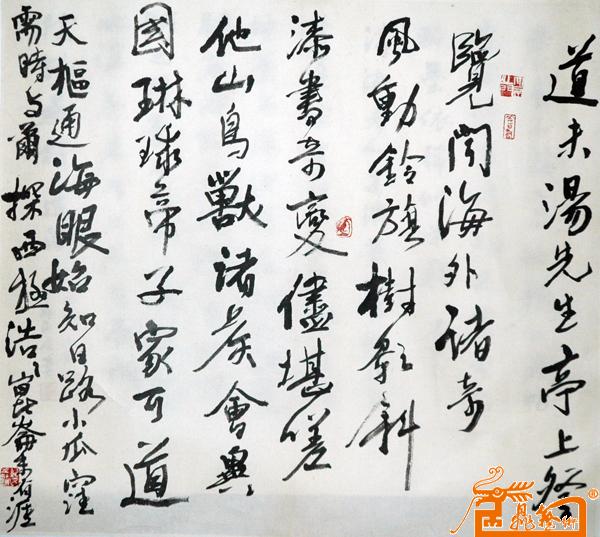 道未湯先生亭上登
覽聞海外諸奇
風動鈴旗樹影斜
漆書奇變儘堪嗟
他山鳥獸諸侯會異
國琳球帝子家可道
天樞通海眼始知日路小瓜窪
需時与爾探西極浩〻崑崙未有涯